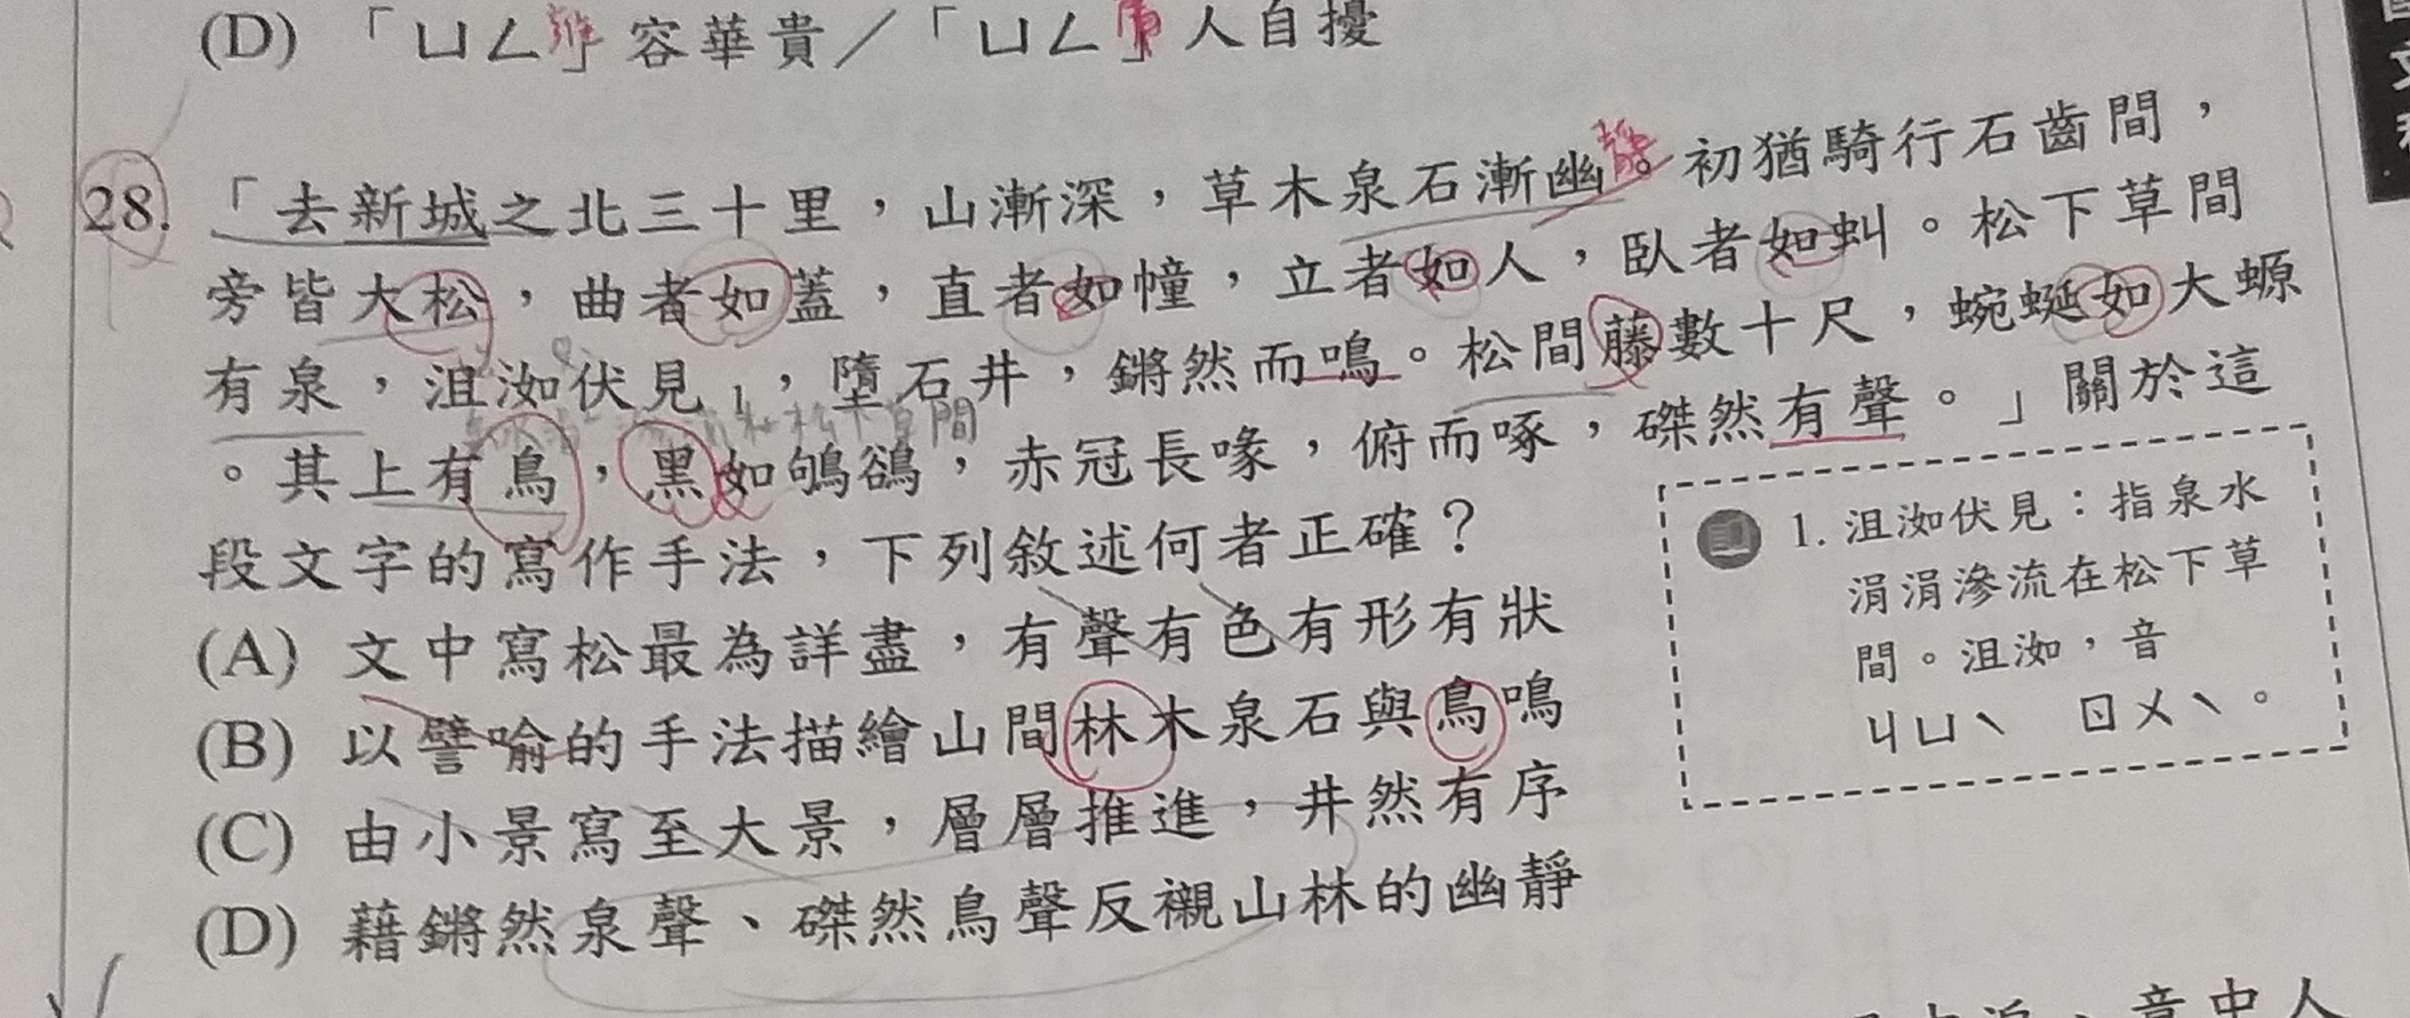 (D) 「ㄩㄥ」容華貴／「ㄩㄥ」人自擾
28. 「去新城之北三十里，山漸深，草木泉石漸幽。初猶騎行石齒間，
旁皆大松，曲者如蓋，直者如幢，立者如人，臥者如虯。松下草間
有泉，沮洳伏見1，墮石井，鏘然而鳴。松間藤數十尺，蜿蜒如大螈
。其上有鳥，黑如鴝鵒，赤冠長喙，俯而啄，磔然有聲。」關於這
段文字的寫作手法，下列敘述何者正確？
(A) 文中寫松最為詳盡，有聲有色有形有狀
(B) 以譬喻的手法描繪山間林木泉石與鳥鳴
(C) 由小景寫至大景，層層推進，井然有序
(D) 藉鏘然泉聲、磔然鳥聲反襯山林的幽靜
1. 沮洳伏見：指泉水
涓涓滲流在松下草
間。沮洳，音
ㄐㄩˋ ㄖㄨˋ。
靜